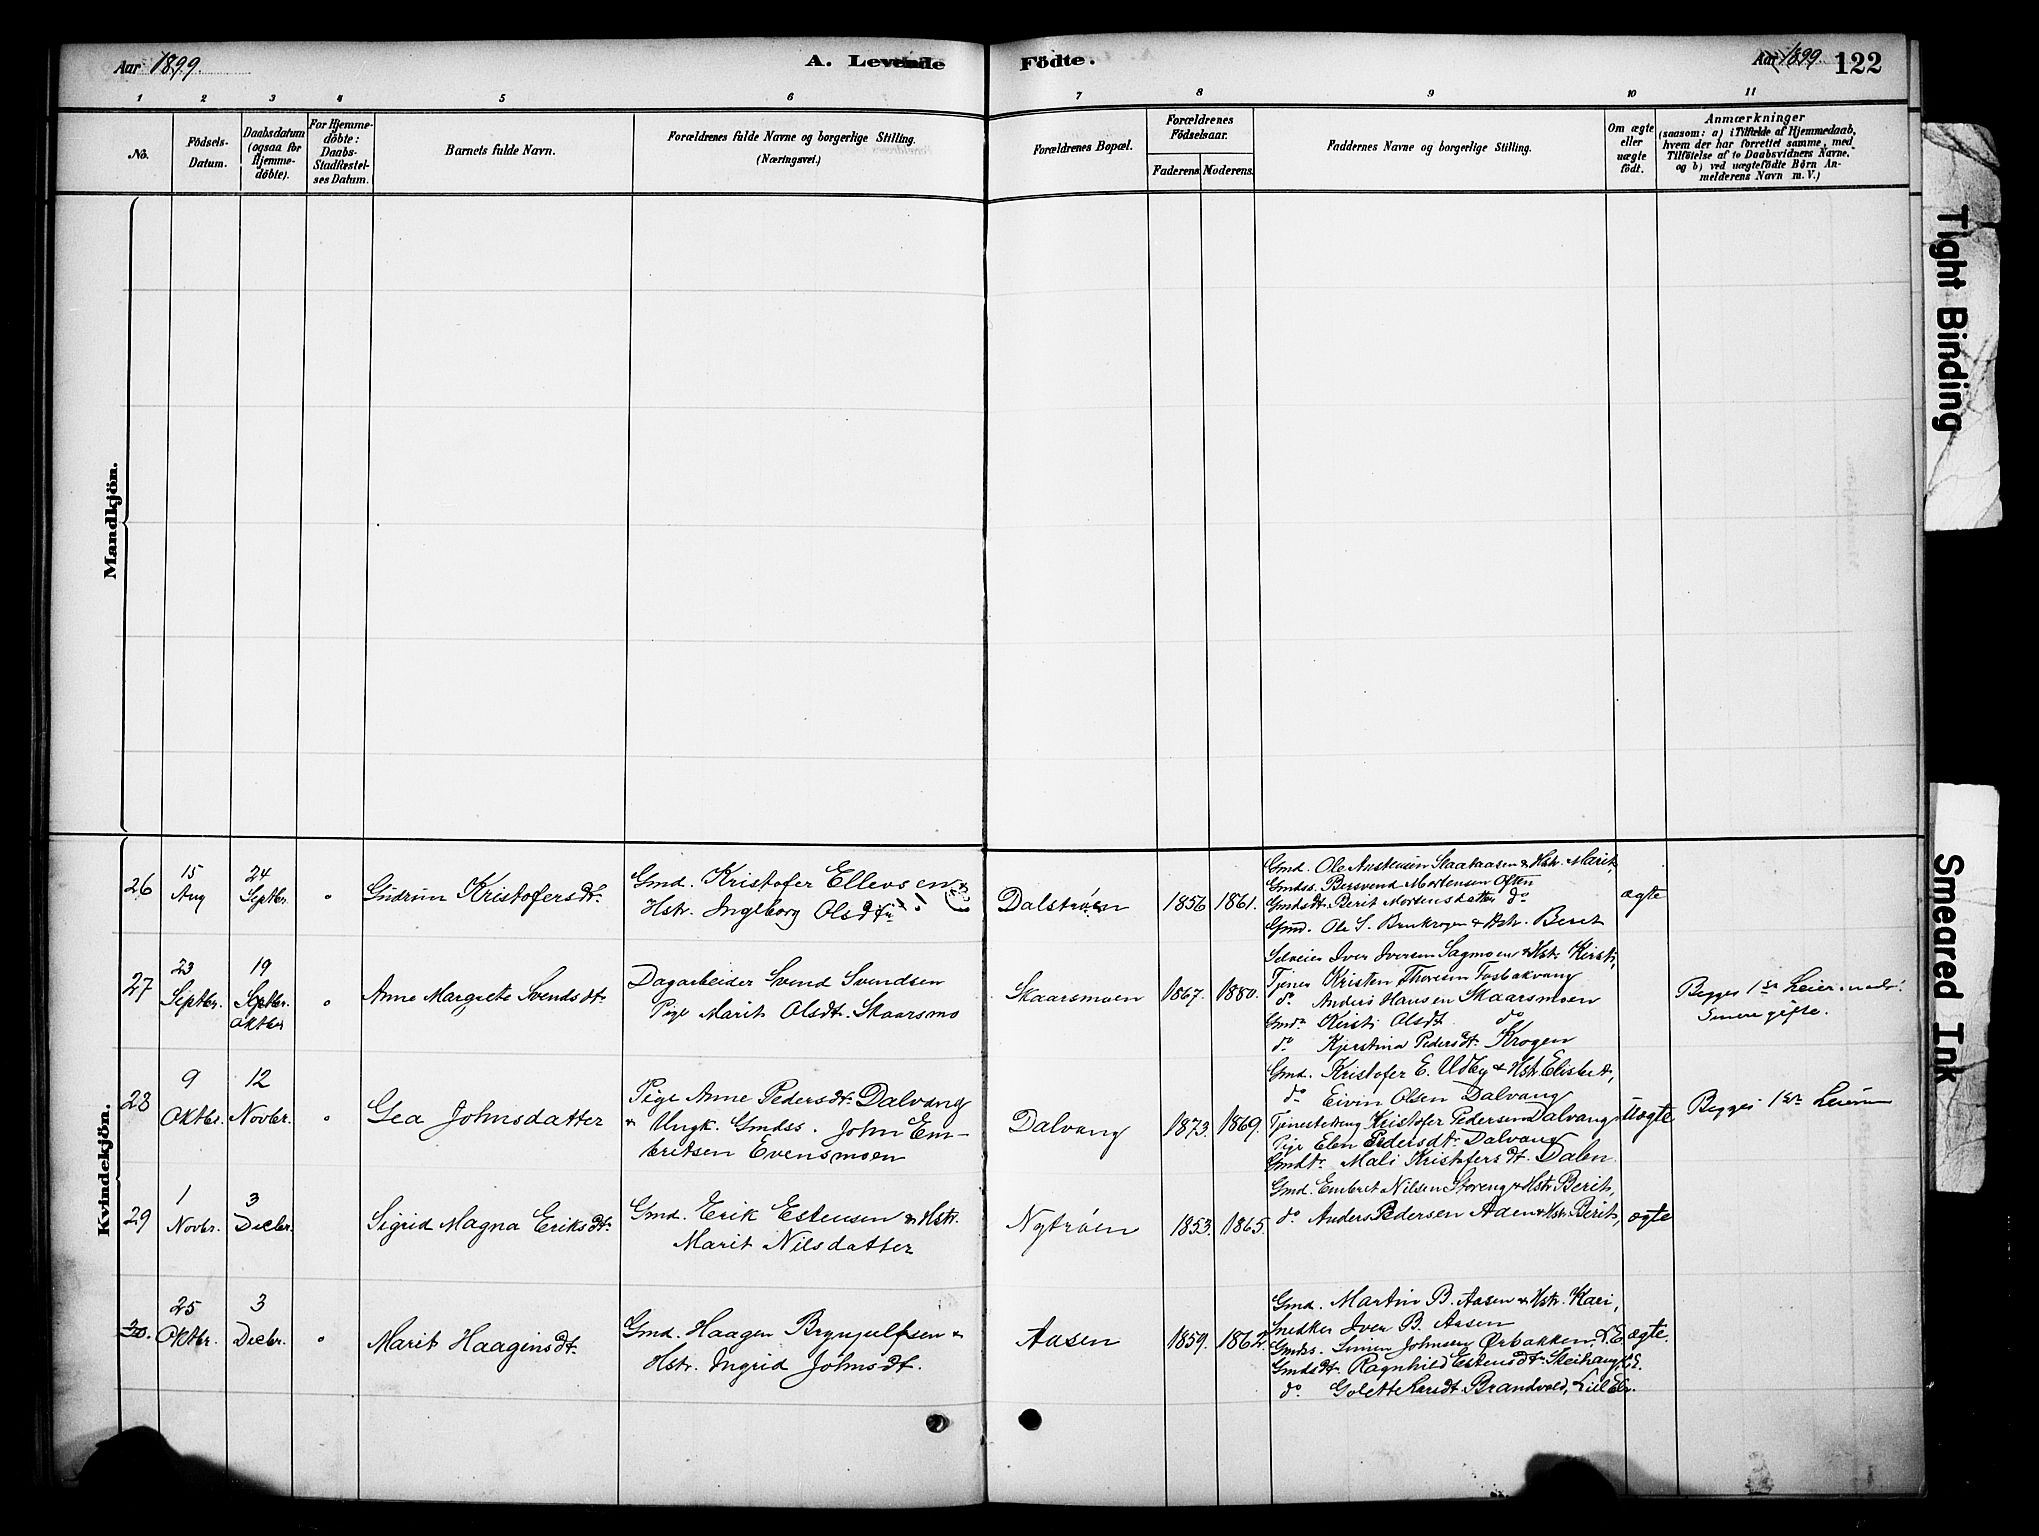 Aar 1899.
A. Levende Födte.
Aar 1899. 122
1 2 3 4 5 6 7 8 9 10 11
No.
Födsels-
Datum.
Daabsdatum
(ogsaa for
Hjemme-
döbte).
For Hjemme-
döbte:
Daabs-
Stadfæstel-
ses Datum.
Barnets fulde Navn.
Forældrenes fulde Navne og borgerlige Stilling.
(Næringsvei.)
Forældrenes Bopæl.
Forældrenes
Födselsaar.
Faderens. Moderens.
Faddernes Navne og borgerlige Stilling.
Om ægte
eller
uægte
födt.
Anmærkninger
(saasom: a) i Tilfælde af Hjemmedaab,
hvem der har forrettet samme, med
Tilföielse af to Daabsvidners Navne,
og b) ved uægtefödte Börn An-
melderens Navn m. V.)
Mandkjön.
Kvindekjön.
26
15
Aug
24
Septbr.
Gudrun Kristofersdt.
Gmd. Kristofer Ellevsen
Hstr. Ingeborg Olsdtr
Dalstrøen
1856 1861.
Gmd. Ole Austensen Skaaraasen & Hstr. Marit,
Gmdss. Bersvend Mortensen Often
Gmdsdt. Berit Mortensdatter do
Gmd. Ole S. Brukrogen & Hstr. Berit
ægte
27
23
Septbr.
19
Septbr.
Oktber
Anne Margrete Svendsdt.
Dagarbeider Svend Svendsen
Pige Marit Olsdt. Skaarsmo
Skaarsmoen
1867. 1880.
Selveier Iver Iversen Sagmoen & Hstr Kirsti,
Tjener Kristen Thoresen Tosbakvang
do. Anders Hansen Skaarsmoen
Gmdr Kirsti Olsdt. do
do Kjerstina Pedersdt. Krogen
Begges 1ste Leierm
Senere gifte.
28
9
Oktbr.
12
Novbr.
Gea Johnsdatter
Pige Anne Pedersdt. Dalvang
& Ungk. Gmdss. John Em-
bretsen Evensmoen
Dalvang
1873. 1869.
Gmd. Kristofer E. Udby & Hstr Elisbet,
do Eivin Olsen Dalvang
Tjenestedreng Kristofer Pedersen Dalvang
Pige Elen Pedersdt. Dalvang
Gmdtr. Mali Kristofersdt. Dalen
Uægte
Begges 1ste Leierm
29
1
Novbr.
3
Decbr.
Sigrid Magna Eriksdt.
Gmd. Erik Estensen & Hstr.
Marit Nilsdatter
Nytrøen
1853. 1865.
Gmd. Embret Nilsen Storeng & Hstr Berit,
do. Anders Pedersen Aaen & Hstr. Berit,
ægte
30.
25
Oktbr.
3
Decbr.
Marit Haagensdt.
Gmd. Haagen Brynjulfsen &
Hstr. Ingrid Johnsdt.
Aasen
1859. 1862.
Gmd. Martin B. Aasen & Hstr. Kari,
Snedker Iver B. Aasen
Gmdss. Simen Johnsen Ørbakken, L.E.
Gmdsdt. Ragnhild Estensdt. Steihaug L.E.
do. Golette Larsdt. Brandvold, Lill Elv.
ægte.
Tight Binding
Smeared Ink